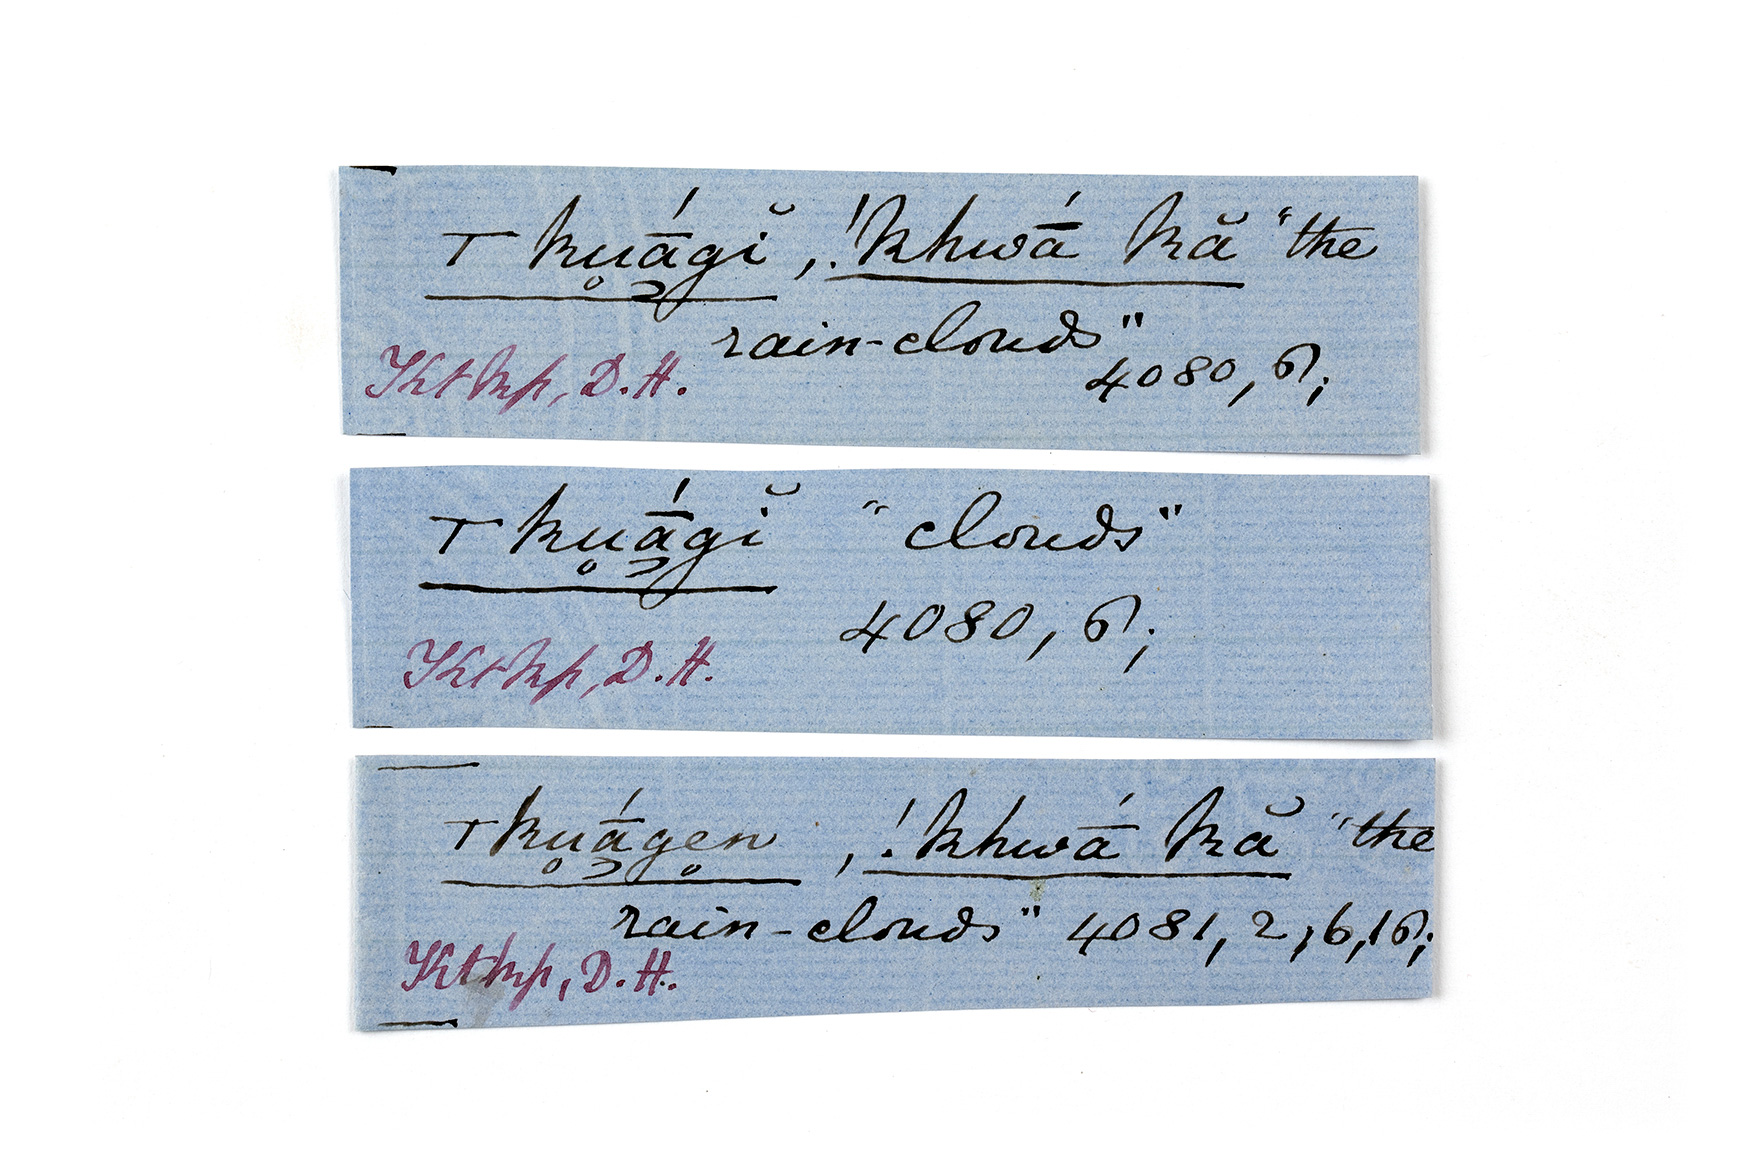 ⊤ ku̥ā̬́gĭ, !khwā́ kă "the
rain-clouds"
4080, 6';
Kt kp, D.H.
⊤ ku̥ā̬́gĭ "clouds"
4080, 6';
Kt kp, D.H.
⊤ ku̥ā̬́ge̥n, !khwā́ kă "the
rain-clouds" 4081, 2, 6, 16';
Kt kp, D.H.